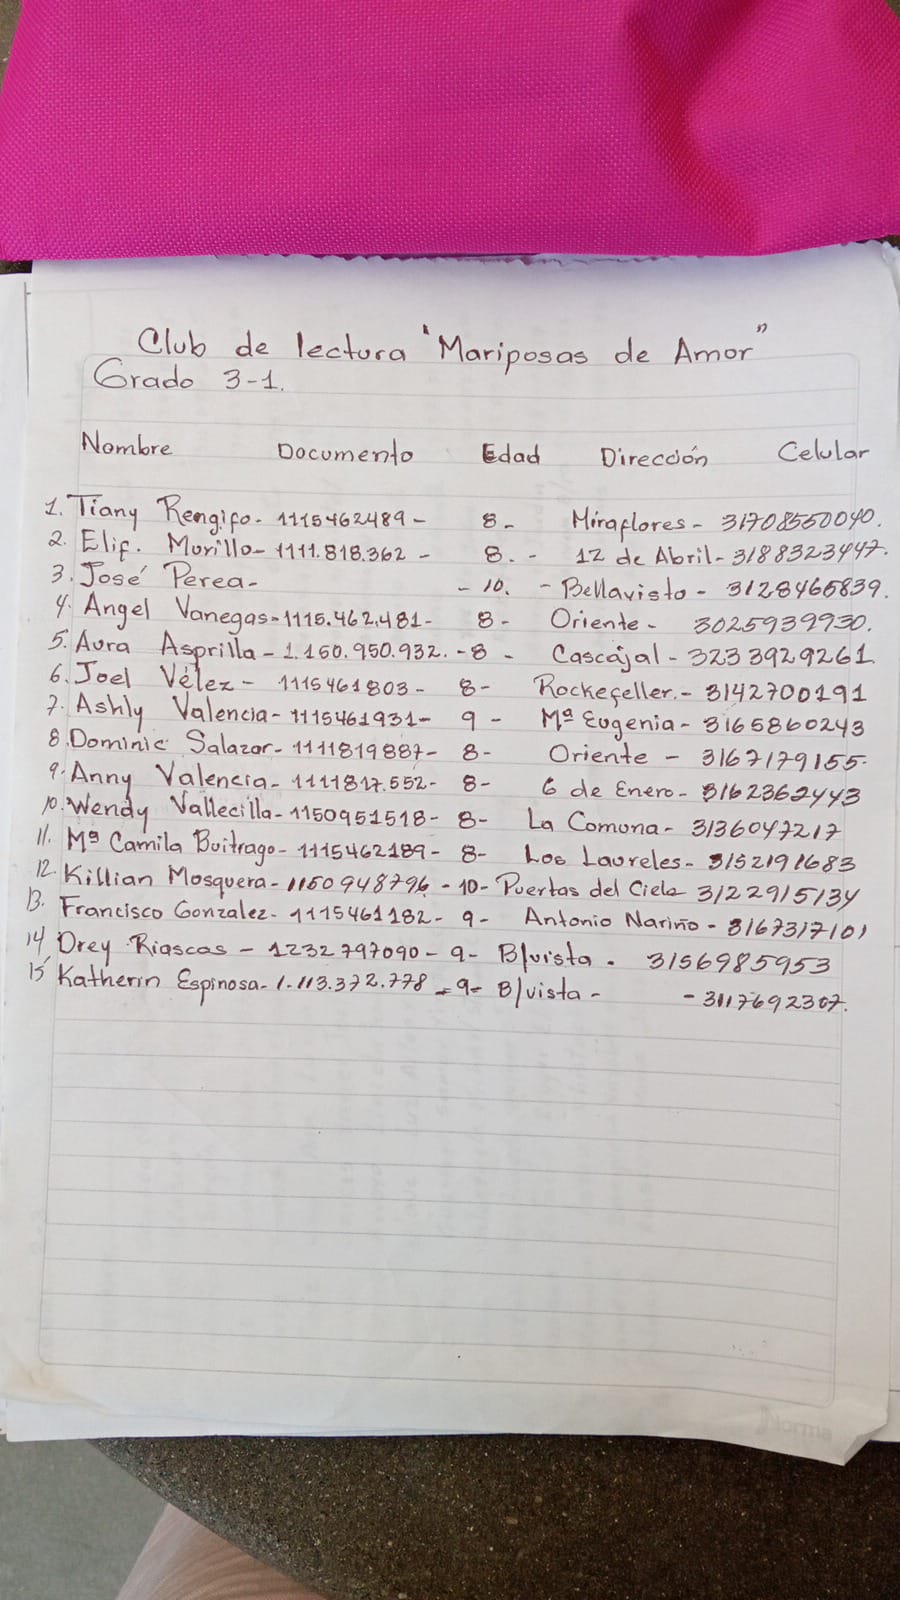 Club de lectura "Mariposas de Amor"
Grado 3-1.
Nombre Documento Edad Dirección Celular
1. Tiany Rengifo. 1115462489 - 8 - Miraflores - 31708550040.
2. Elif. Morillo - 1111.818.362 - 8. - 12 de Abril - 3188323447.
3. José Perea - - 10. - Bellavista - 3128465839.
4. Angel Vanegas - 1115.462.481 - 8 - Oriente - 3025939930.
5. Aura Asprilla - 1.150.950.932. - 8 - Cascajal - 3233929261.
6. Joel Vélez - 1115461803 - 8 - Rockefeller. - 3142700191
7. Ashly Valencia - 1115461931 - 9 - Mª Eugenia - 3165860243
8. Dominic Salazar - 1111819887 - 8 - Oriente - 3167179155.
9. Anny Valencia - 1111817.552 - 8 - 6 de Enero - 3162362443
10. Wendy Vallecilla - 1150951518 - 8 - La Comuna - 3136047217
11. Mª Camila Buitrago - 1115462189 - 8 - Los Laureles - 3152191683
12. Killian Mosquera - 1150948796 - 10 - Puertas del Cielo 3122915134
13. Francisco Gonzalez - 1115461182 - 9 - Antonio Nariño - 3167317101
14 Drey Riascos - 1232797090 - 9 - B/vista. 3156985953
15 Katherin Espinosa - 1.113.372.778 - 9 - B/vista - - 3117692307.
Norma